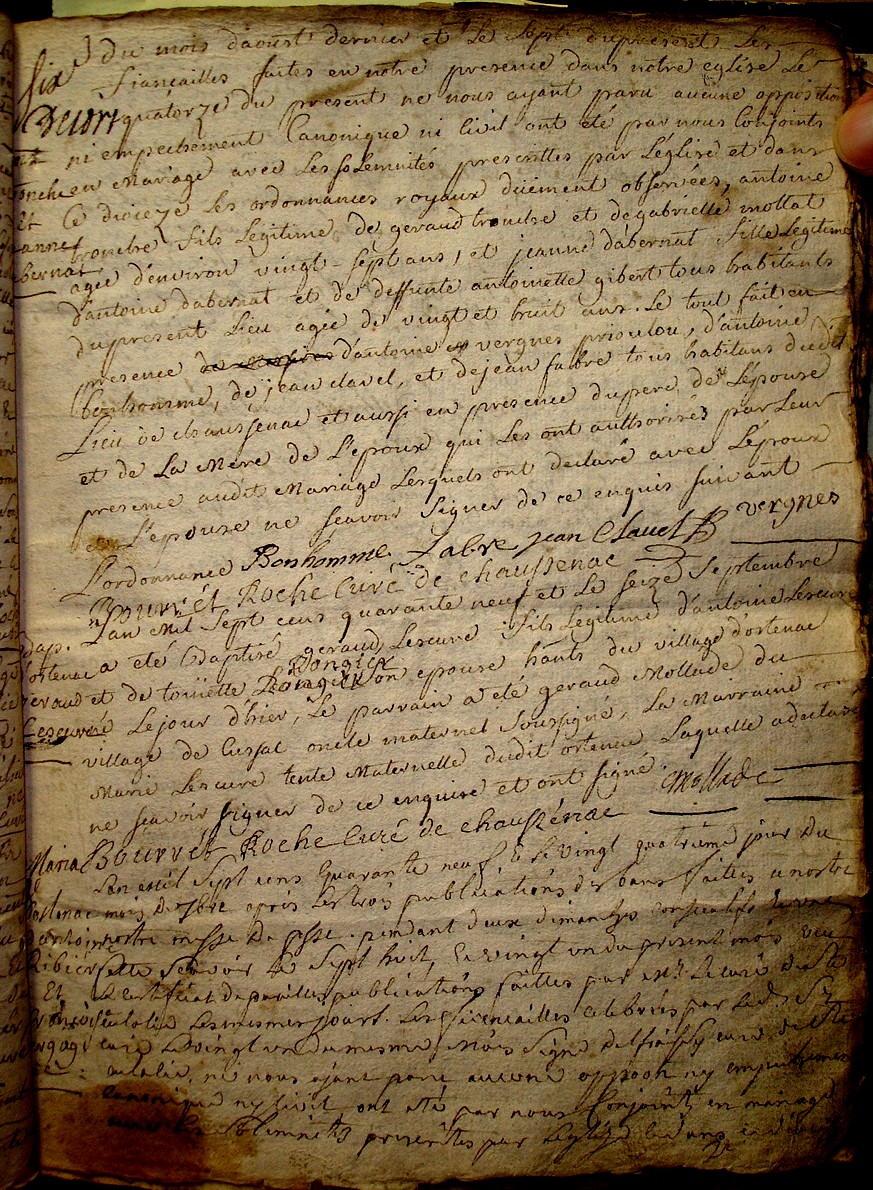 du mois d'aoust dernier et le sept du present les
fiancailles faites en notre presence dans notre eglise le
quatorze du present ne nous ayant paru aucune opposition
ni empechement Canonique ni Civil ont été par nous Conjoints
en Mariage avec les solemnités prescrittes par l'église et dans
Ce dioceze les ordonnances royaux düement observées, antoine
troucha fils Legitime de geraud troucha et de gabrielle mollat
agée d'environ vingt-sept ans, et jeanne d'abernat fille Legitime
d'antoine dabernat et de deffunte antoinette gibert tous habitants
du present Lieu agée de vingt et huit ans. Le tout fait en
presence d'antoine vergnes prioulou, d'antoine
bonhomme, de jean clavel, et de jean fabre tous habitans dudit
Lieu de chaussenac et aussi en presence du pere de L'épouse
et de La Mere de L'epoux qui Les ont authorisés par Leur
presence audit Mariage Lesquels ont declaré avec L'époux
et L'epouse ne scavoir signer de ce enquis suivant
L'ordonnance Bonhomme fabre jean Clavel vergnes
Bourrét Roche Curé de chaussenac
Bap. Lan Mil Sept cens quarante neuf et Le seize Septembre
d'ostenac a eté Baptisé geraud Lescure fils Legitime d'antoine Lescure
geraud et de toinette Rongier son epouse hants du village d'ostenac
Lescure né Le jour d'hier, Le parrain a eté geraud Mollade du
village de Cussac oncle maternel soussigné, La Marraine
Marie Lescure tente Maternelle dudit ostenac Laquelle a declaré
ne scavoir signer de ce enquise et ont signé.
Mollade
Bourrét Roche Curé de chaussénac
Maria Lan mil sept cens quarante neuf & le vingt quatrième jour du
mois de 7bre après les trois publications des bans faittes a nostre
nostre messe de psse. pendant deux dimanches consecutifs & une
feste scavoir le sept huit, & vingt un du present mois veu
Et le certificat de pareilles publications faittes par Mr. le curé de Ste
eulalie les mesmes jours. Les fiancailles celebrées par led. Sr.
curé le vingt un du mesme mois signé curé de Ste
eulalie, ne nous ayant paru aucune oppoon ny empechement
canonique ny civil ont été par nous Conjoints en mariage
avec les solemnités prescrittes par l'eglize